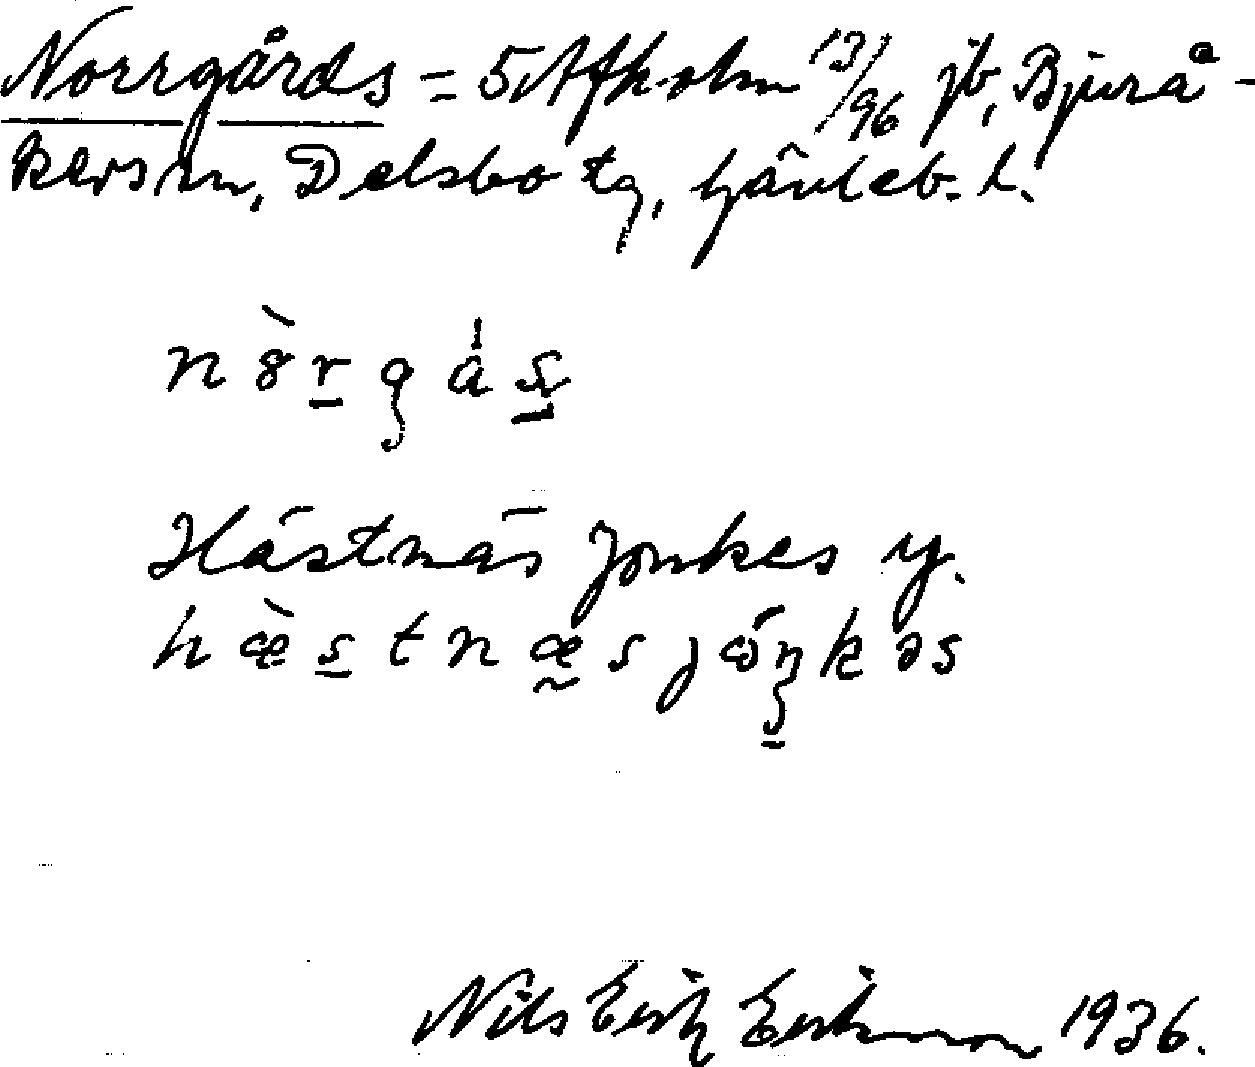 Norrgårds = 5 Avholm 13/96 jb, Bjurå-
kers sn, Delsbo tg, Gävleb. l.
nȍrgás
Hästnäs Jonkes y.
hæ̀stnæs jóŋkəs
Nils Erik Erikson 1936.